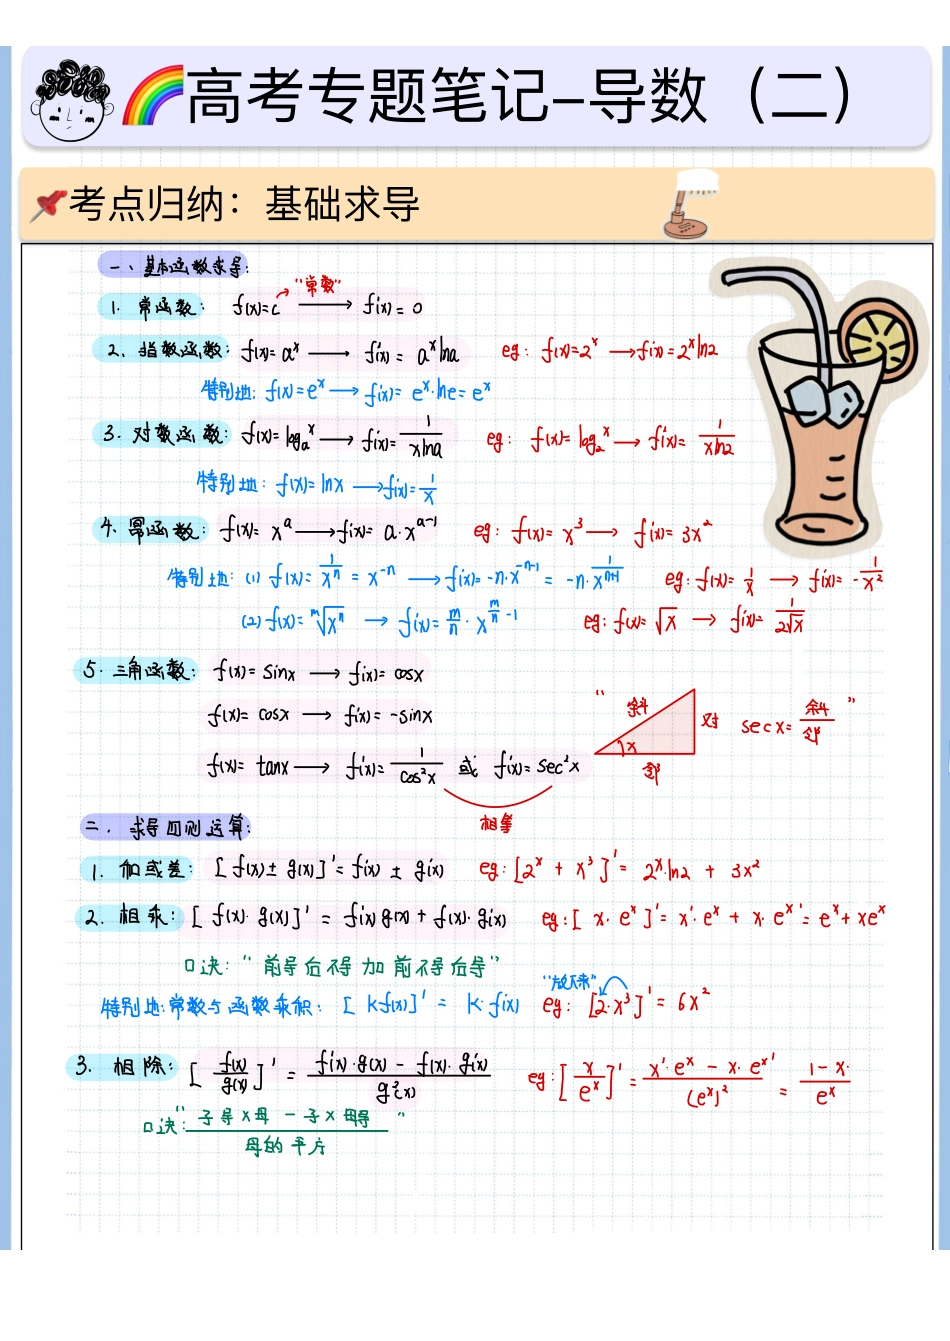 高考专题笔记-导数（二）
考点归纳：基础求导
一、基本函数求导：
"常数"
1. 常函数： f(x)=c ⟶ f'(x)=0
2. 指数函数： f(x)=aˣ ⟶ f'(x)=aˣlna eg： f(x)=2ˣ ⟶ f'(x)=2ˣln2
特别地： f(x)=eˣ ⟶ f'(x)=eˣ·lne=eˣ
3. 对数函数： f(x)=logₐx ⟶ f'(x)=1/(xlna) eg： f(x)=log₂x ⟶ f'(x)=1/(xln2)
特别地： f(x)=lnx ⟶ f'(x)=1/x
4. 幂函数： f(x)=xᵃ ⟶ f'(x)=a·xᵃ⁻¹ eg： f(x)=x³ ⟶ f'(x)=3x²
特别地：(1) f(x)=1/xⁿ=x⁻ⁿ ⟶ f'(x)=-n·x⁻ⁿ⁻¹=-n·1/xⁿ⁺¹ eg：f(x)=1/x ⟶ f'(x)=-1/x²
(2) f(x)=ᵐ√xⁿ ⟶ f'(x)=m/n·x^(m/n -1) eg：f(x)=√x ⟶ f'(x)=1/(2√x)
5. 三角函数： f(x)=sinx ⟶ f'(x)=cosx
f(x)=cosx ⟶ f'(x)=-sinx
" 斜 对 x 邻 secx=斜/邻 "
f(x)=tanx ⟶ f'(x)=1/cos²x 或 f'(x)=sec²x
相等
二. 求导四则运算：
1. 加或差： [f(x)±g(x)]'=f'(x)±g'(x) eg：[2ˣ+x³]'=2ˣ·ln2+3x²
2. 相乘： [f(x)·g(x)]'=f'(x)g(x)+f(x)·g'(x) eg：[x·eˣ]'=x'·eˣ+x·eˣ'=eˣ+xeˣ
口诀："前导后不导 加 前不导后导"
"放下来"
特别地：常数与函数乘积： [kf(x)]'=k·f'(x) eg： [2·x³]'=6x²
3. 相除： [f(x)/g(x)]'=(f'(x)·g(x)-f(x)·g'(x))/g²(x) eg：[x/eˣ]'=(x'·eˣ-x·eˣ')/(eˣ)²=(1-x·)/eˣ
口诀："子导×母-子×母导"
母的平方